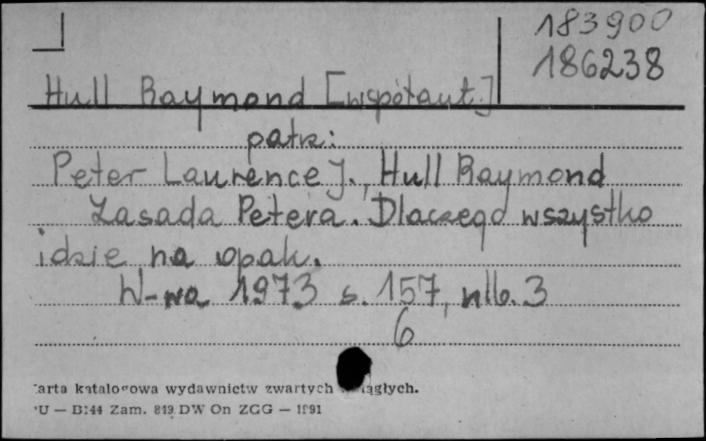 183900
186238
Hull Raymond [współaut.]
patrz:
Peter Laurence J., Hull Raymond
Zasada Petera. Dlaczego wszystko
idzie na opak.
W-wa 1973 s. 157, nlb. 3
6
arta katalogowa wydawnictw zwartych ciągłych.
U — B144 Zam. 819 DW On ZGG — 1891